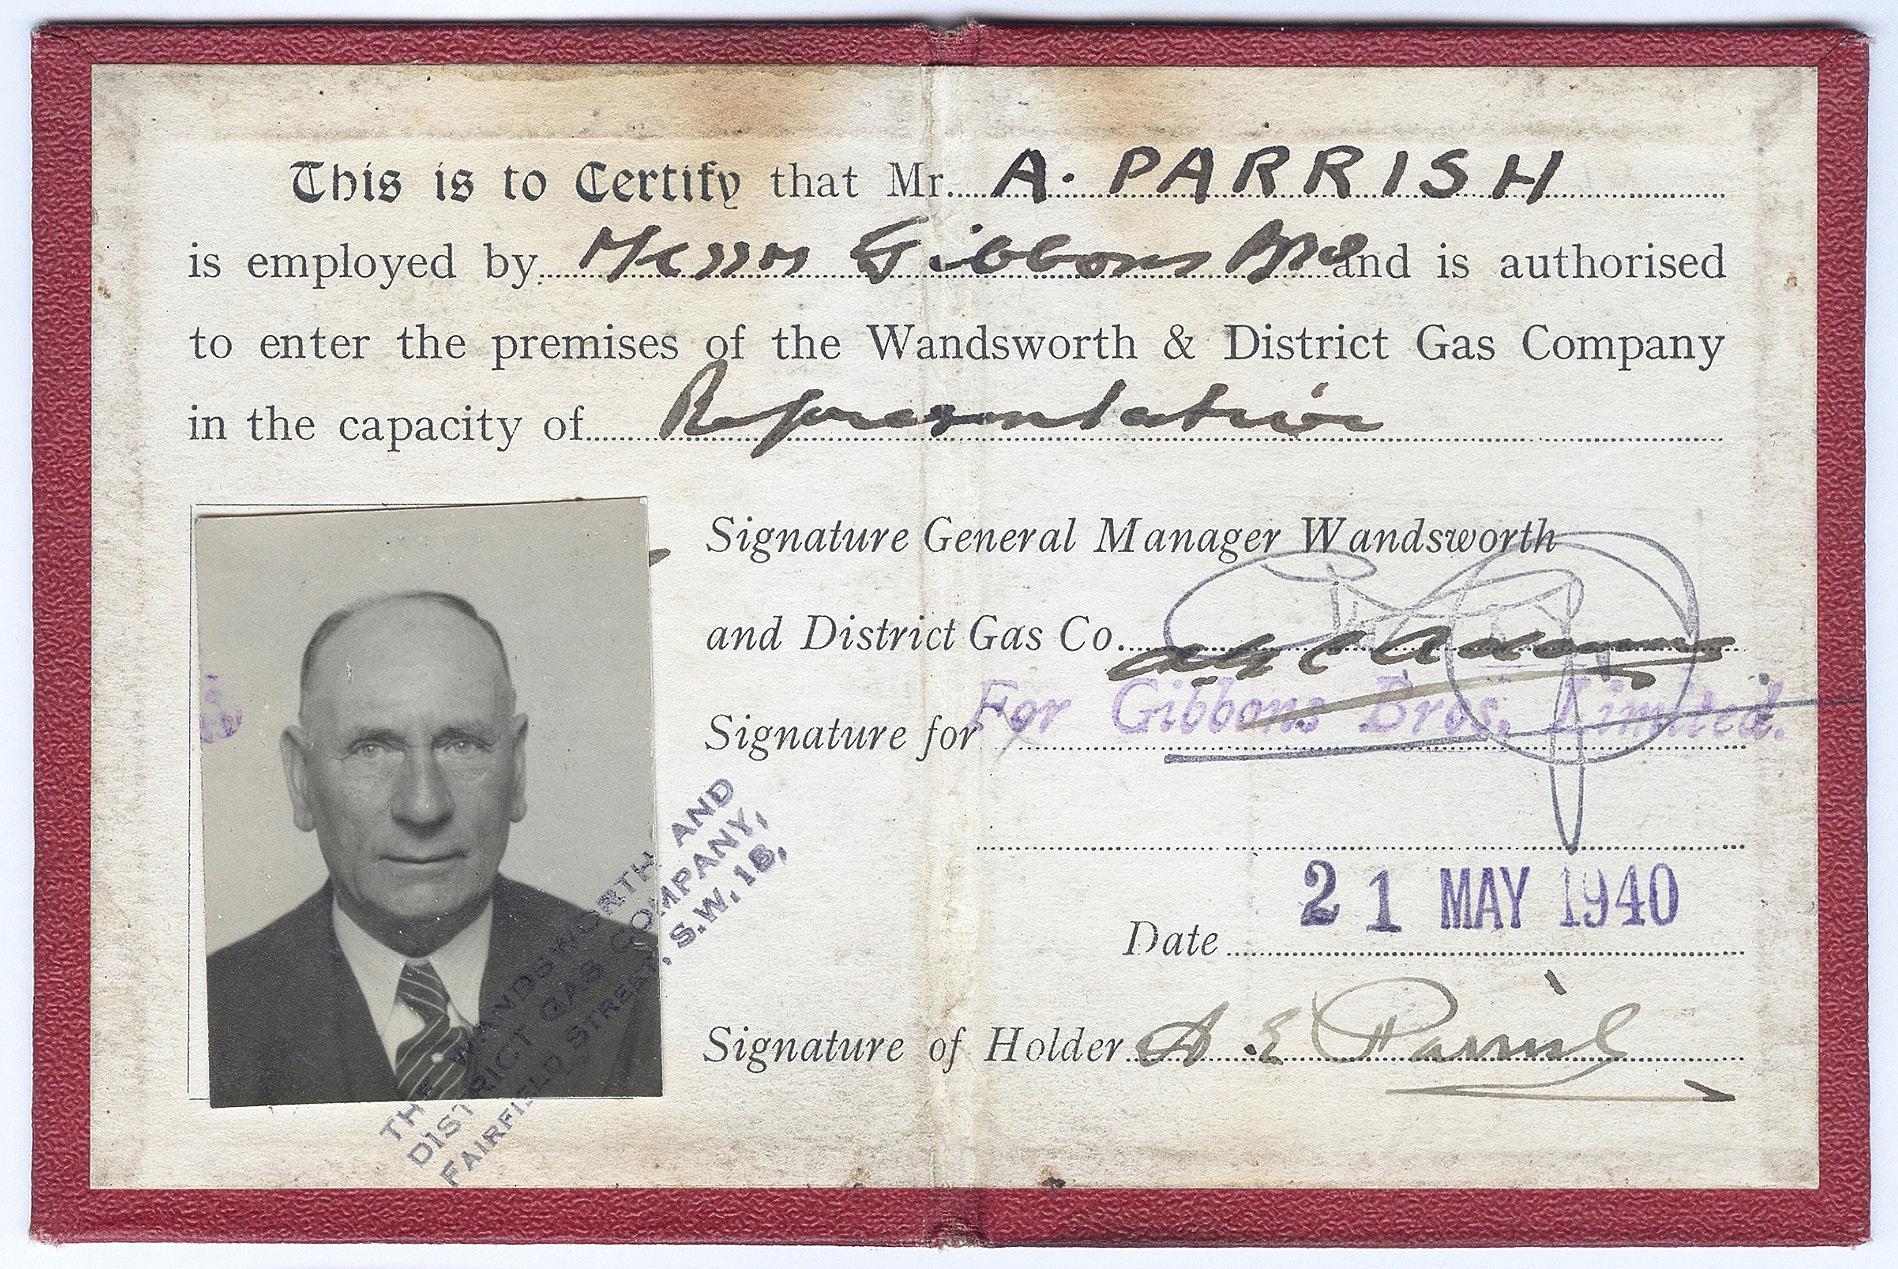 This is to Certify that Mr. A. PARRISH
is employed by Messrs Gibbons Bros and is authorised
to enter the premises of the Wandsworth & District Gas Company
in the capacity of Representative
Signature General Manager Wandsworth
and District Gas Co.
Signature for For Gibbons Bros. Limited.
Date 21 MAY 1940
Signature of Holder A. E Parrish
THE WANDSWORTH AND
DISTRICT GAS COMPANY,
FAIRFIELD STREET, S.W.18.